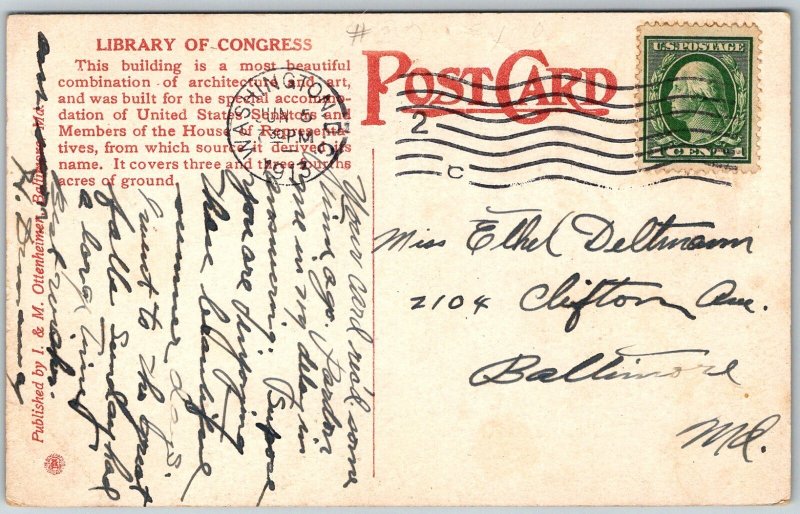 LIBRARY OF CONGRESS
This building is a most beautiful
combination of architecture and art,
and was built for the special accommo-
dation of United States Senators and
Members of the House of Representa-
tives, from which source it derives its
name. It covers three and three-fourths
acres of ground.
POST CARD
WASHINGTON, D.C.
JUN 5
PM
1913
2
C
U.S. POSTAGE
1 CENT 1
Miss Ethel Deltmann
2104 Clifton Ave.
Baltimore
Md.
Your card rec'd some
time ago. Pardon
me in my delay in
answering. Suppose
you are enjoying
these beautiful
summer days.
Went to the Great
Falls Sunday had
a long time
Best wishes.
Published by I. & M. Ottenheimer, Baltimore, Md.